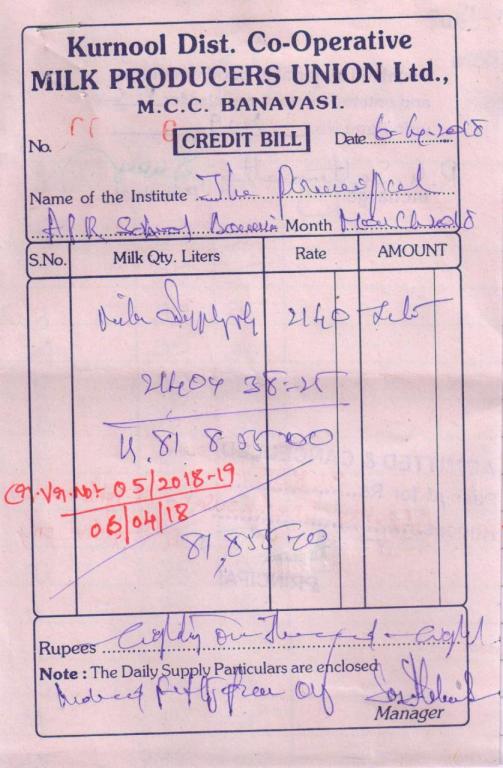 Kurnool Dist. Co-Operative
MILK PRODUCERS UNION Ltd.,
M.C.C. BANAVASI.
No. CREDIT BILL Date 6-4-2018
Name of the Institute The Principal
A.P.R. School Month March 2018
S.No. Milk Qty. Liters Rate AMOUNT
Milk 2140
2140 38-25
81 855 00
05/2018-19
06/04/18
81,855-00
Rupees Eighty one Thousand Eight
Note : The Daily Supply Particulars are enclosed
Hundred Fifty only
Manager